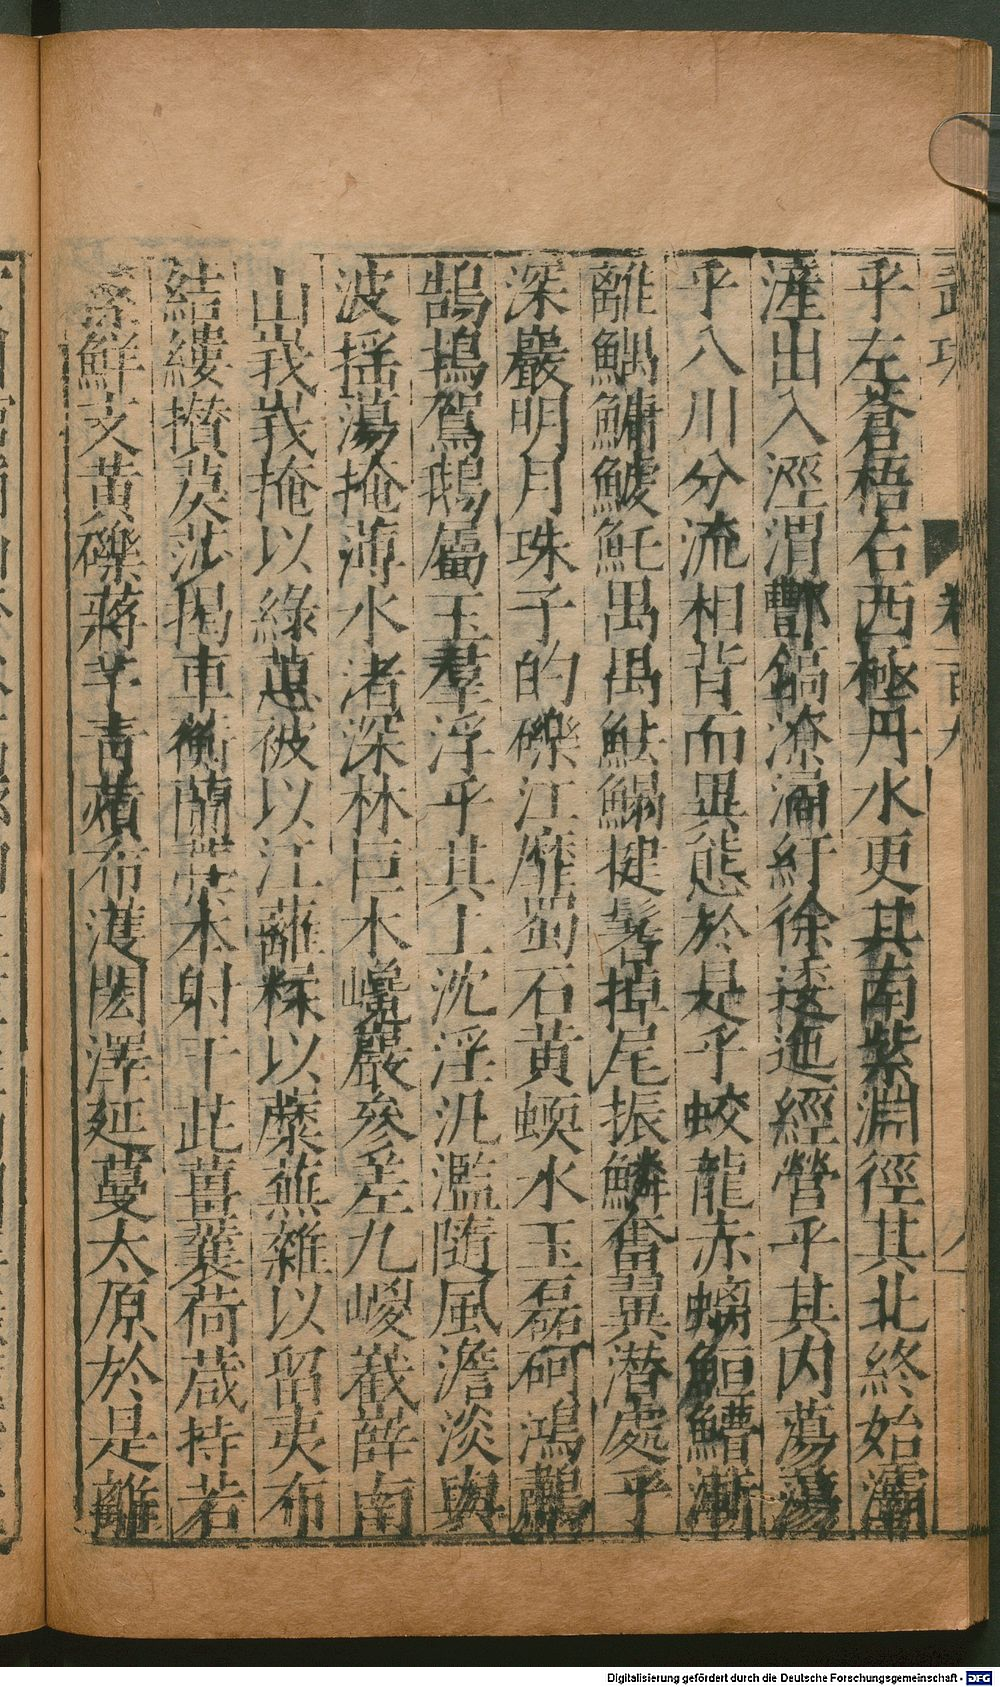 乎左蒼梧右西極丹水更其南紫淵徑其北終始灞
滻出入涇渭酆鎬潦潏紆徐逶迤經營乎其内蕩蕩
乎八川分流相背而異態於是乎蛟龍赤螭䱭䲛漸
離鰅鱅鰬魠禺禺魼鰨揵鬐掉尾振鱗奮翼潛處乎
深巖明月珠子的礫江靡蜀石黃蝡水玉磊砢鴻鷫
鵠鴇鴐鵝屬玉羣浮乎其上沈淫汎濫隨風澹淡與
波揺蕩掩薄水渚深林巨木嶄巖參差九嵕嶻嶭南
山峩峩掩以綠蕙被以江蘺糅以蘪蕪雜以留夷布
結縷攢莫莎揭車衡蘭槀本射干茈薑蘘荷葴持若
蓀鮮文黃礫蔣芋青薠布濩閎澤延蔓太原於是離
Digitalisierung gefördert durch die Deutsche Forschungsgemeinschaft - DFG